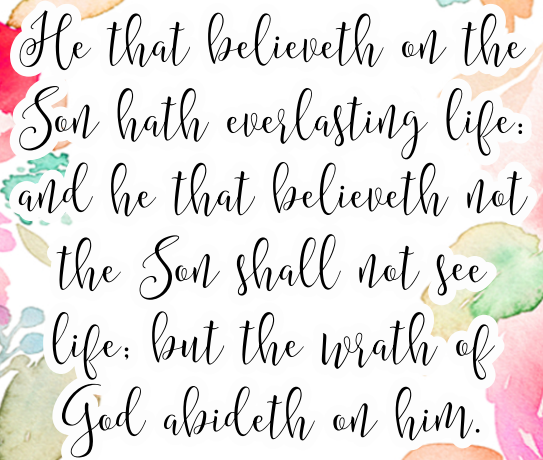 He that believeth on the
Son hath everlasting life:
and he that believeth not
the Son shall not see
life; but the wrath of
God abideth on him.